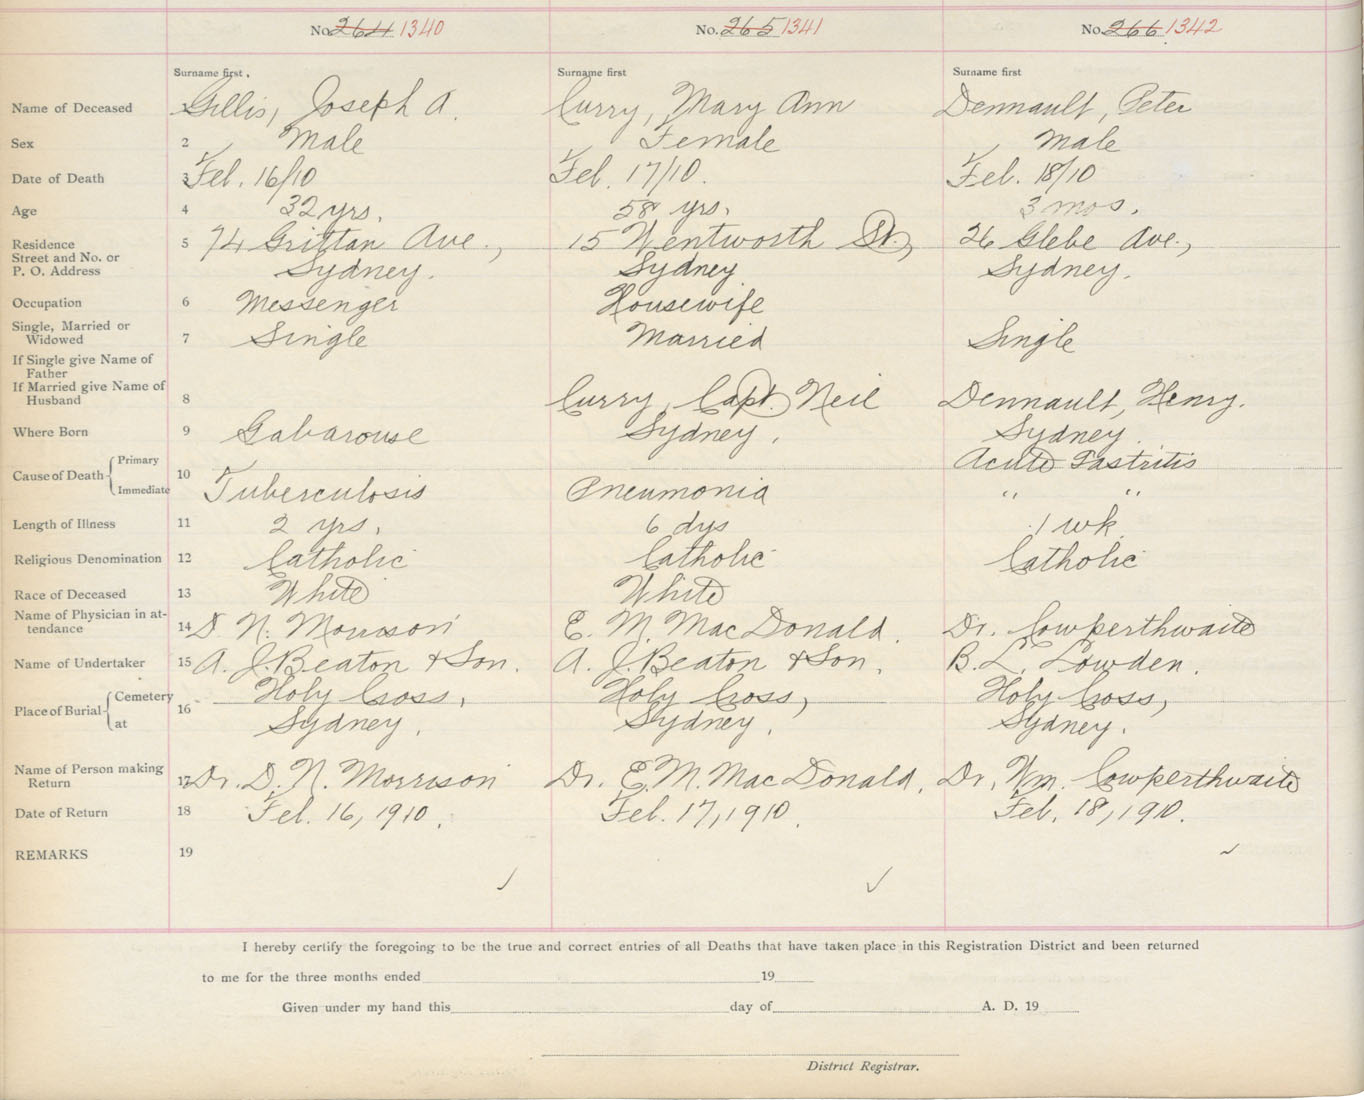 No. 264 1340 No. 265 1341 No. 266 1342
Surname first. Surname first Surname first
Name of Deceased 1 Gillis, Joseph A. Curry, Mary Ann Dennault, Peter
Sex 2 Male Female Male
Date of Death 3 Feb. 16/10 Feb. 17/10. Feb. 18/10
Age 4 32 yrs. 58 yrs. 3 mos.
Residence 5 74 Grittan Ave., 15 Wentworth St., 26 Glebe Ave.,
Street and No. or
P. O. Address Sydney. Sydney Sydney.
Occupation 6 Messenger Housewife
Single, Married or
Widowed 7 Single Married Single
If Single give Name of
Father
If Married give Name of
Husband 8 Curry, Capt. Neil Dennault, Henry.
Where Born 9 Gabarouse Sydney. Sydney.
Cause of Death Primary 10 Acute Gastritis
Immediate Tuberculosis Pneumonia " "
Length of Illness 11 2 yrs. 6 dys 1 wk.
Religious Denomination 12 Catholic Catholic Catholic
Race of Deceased 13 White White
Name of Physician in at-
tendance 14 D. N. Morrison E. M. MacDonald. Dr. Cowperthwaite
Name of Undertaker 15 A. J. Beaton & Son. A. J. Beaton & Son. B. L. Lowden.
Place of Burial Cemetery 16 Holy Cross, Holy Cross, Holy Cross,
at Sydney. Sydney. Sydney.
Name of Person making
Return 17 Dr. D. N. Morrison Dr. E. M. MacDonald. Dr. Wm. Cowperthwaite
Date of Return 18 Feb. 16, 1910. Feb. 17, 1910. Feb. 18, 1910.
REMARKS 19
I hereby certify the foregoing to be the true and correct entries of all Deaths that have taken place in this Registration District and been returned
to me for the three months ended 19
Given under my hand this day of A. D. 19
District Registrar.